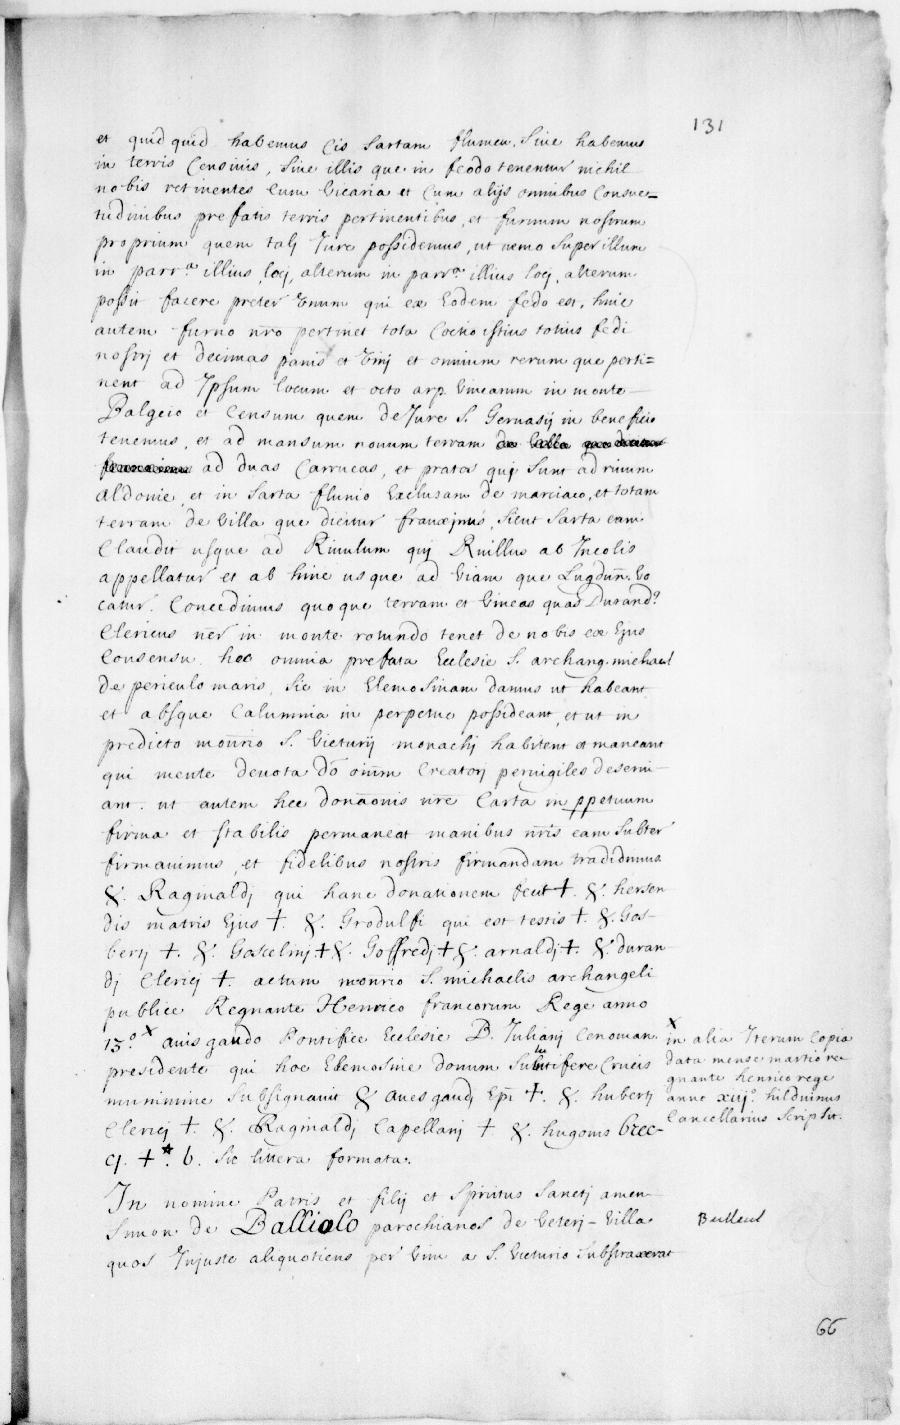 131
et quidquid habemus Cis Sartam flumen, Siue habemus
in terris Censiuis, Siue illis que in feodo tenentur nichil
nobis retinentes Cum Vicaria et Cum alijs omnibus Consue=
tudinibus prefatis terris pertinentibus, et furnum nostrum
proprium quem talj Jure possidemus, ut nemo Super illum
in parr.a illius locj, alterum in parr.a illius locj, alterum
possit facere preter Vnum qui ex Eodem fedo est, huic
autem furno nr̄o pertinet tota Coctio istius totius fedi
nostrj et decimas panis et Vinj et omnium rerum que perti=
nent ad Ipsum locum et octo arp. Vinearum in monte
Balgeio et Censum quem de Jure S. Geruasij in beneficio
tenemus, et ad mansum nouum terram
ad duas Carrucas, et prata quj Sunt ad riuum
aldonie, et in Sarta fluuio Exclusam de marciaco, et totam
terram de Villa que dicitur Sicut Sarta eam
Claudit usque ad Riuulum quj Ruillus ab Incolis
appellatur et ab hinc usque ad Viam que Lugdun̄. Vo
catur. Concedimus quoque terram et Vineas quas Durand.9
Clericus nēr in monte rotundo tenet de nobis ex Ejus
Consensu. hec omnia prefata Ecclesie S. archang. michael
de periculo maris, Sic in Elemosinam damus ut habeant
et absque Calumnia in perpetuo possideant, et ut in
predicto mon̄rio S. Victurij monachj habitent et maneant
qui mente deuota dō oīum Creatorj peruigiles deserui-
ant. ut autem hec don̄aonis nr̄e Carta in ppetuum
firma et stabilis permaneat manibus nr̄is eam Subter
firmauimus, et fidelibus nostris firmandam tradidimus
&. Raginaldj qui hanc donationem fecit †. &. hersen
dis matris Ejus †. &. Grodulfi qui est testis †. &. Gos-
bertj †. &. Goscelinj † &. Goffredj † &. arnaldj †. &. duran
dj Clericj †. actum mon̄rio S. michaelis archangeli
publice Regnante Henrico francorum Rege anno
13.o x auisgaudo Pontifice Ecclesie B. Julianj Cenoman.
presidente qui hoc Elemosine donum Salutifere Crucis
munimine Subsignauit & auesgaudj Ep̄i †. &. hubertj
Clericj †. &. Raginaldj Capellanj †. &. hugonis brec-
cj. †. * b. Sic littera formata.
x
in alia Iterum Copia
data mense martio re
gnante henrico rege
anno xiij.o hilduinus
Cancellarius Scripsit.
In nomine Patris et filij et Spiritus Sanctj amen
Simon de Balliolo parochianos de Veterj-Villa
quos Injuste aliquotiens per Vim a S. Victurio Substraxerat
Bulleul
66